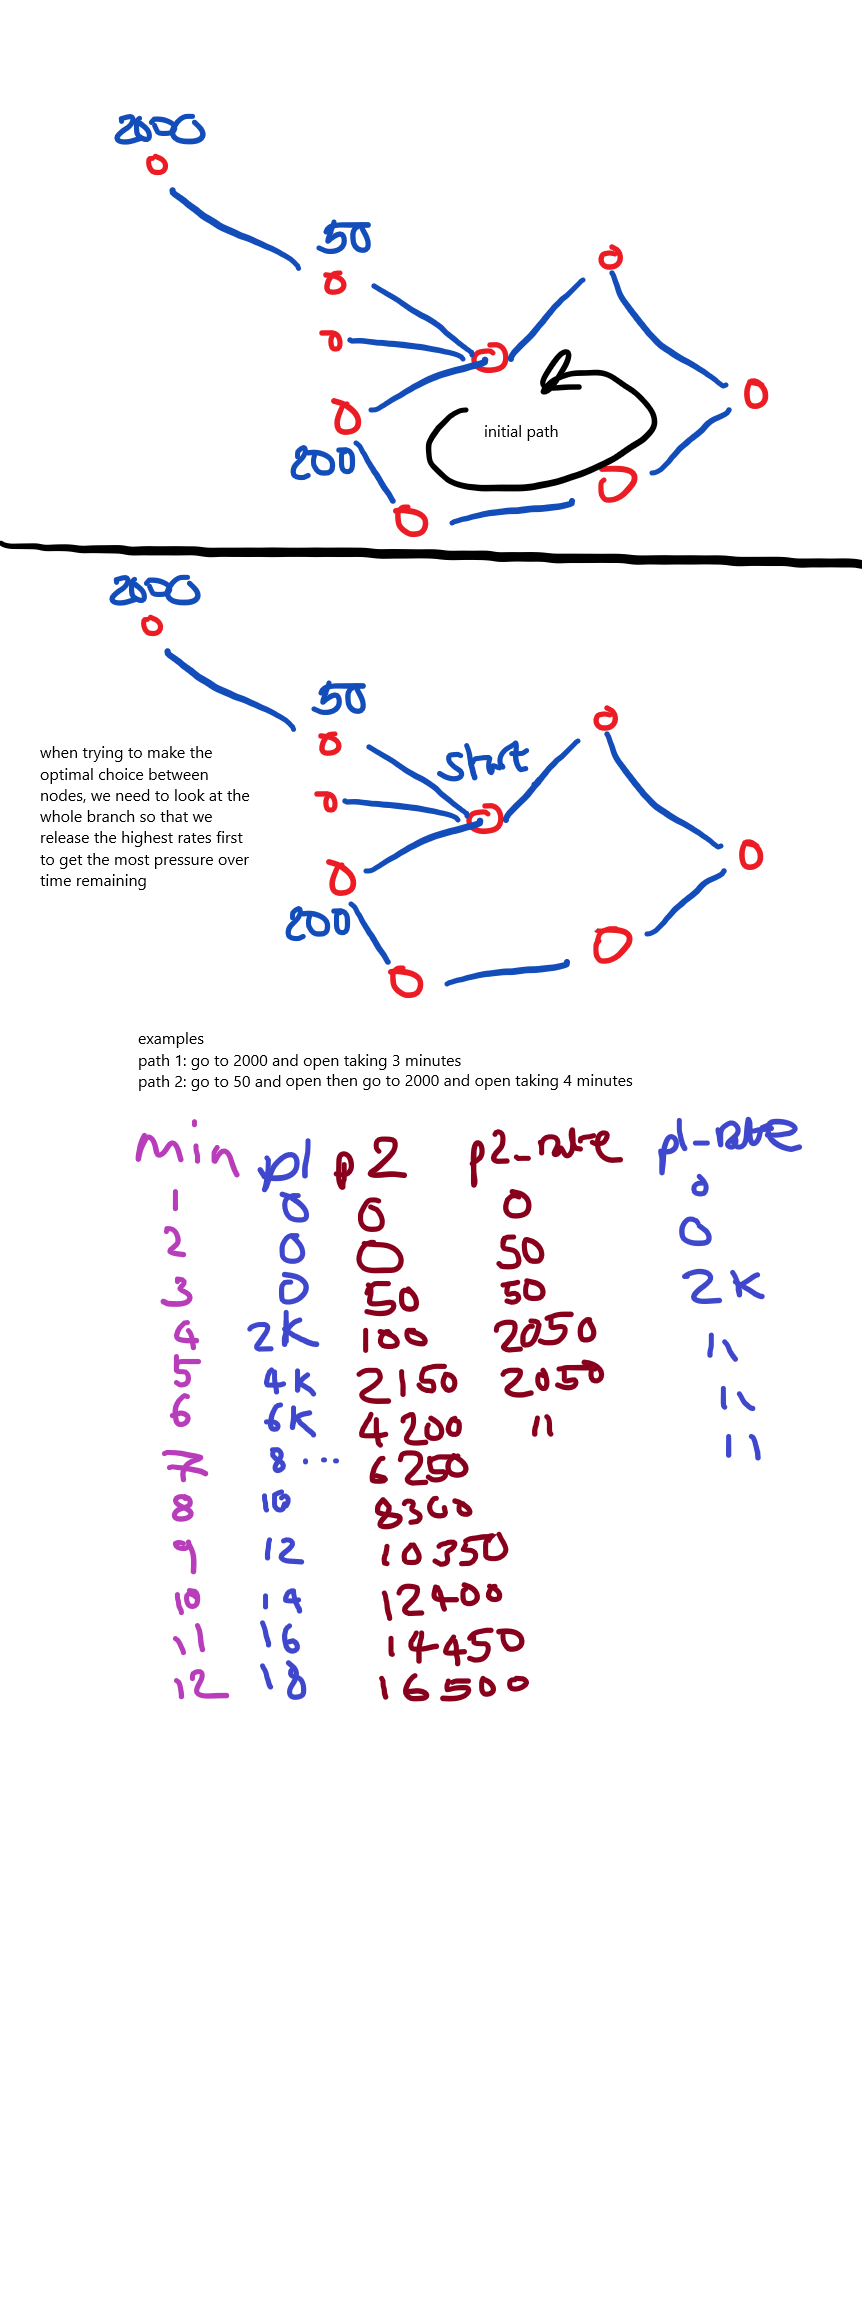 2000
50
initial path
200
2000
50
start
when trying to make the
optimal choice between
nodes, we need to look at the
whole branch so that we
release the highest rates first
to get the most pressure over
time remaining
200
examples
path 1: go to 2000 and open taking 3 minutes
path 2: go to 50 and open then go to 2000 and open taking 4 minutes
min p1 p2 p2_rate p1_rate
1 0 0 0 0
2 0 0 50 0
3 0 50 50 2K
4 2K 100 2050 11
5 4K 2150 2050 11
6 6K 4200 11 11
7 8... 6250
8 10 8300
9 12 10350
10 14 12400
11 16 14450
12 18 16500